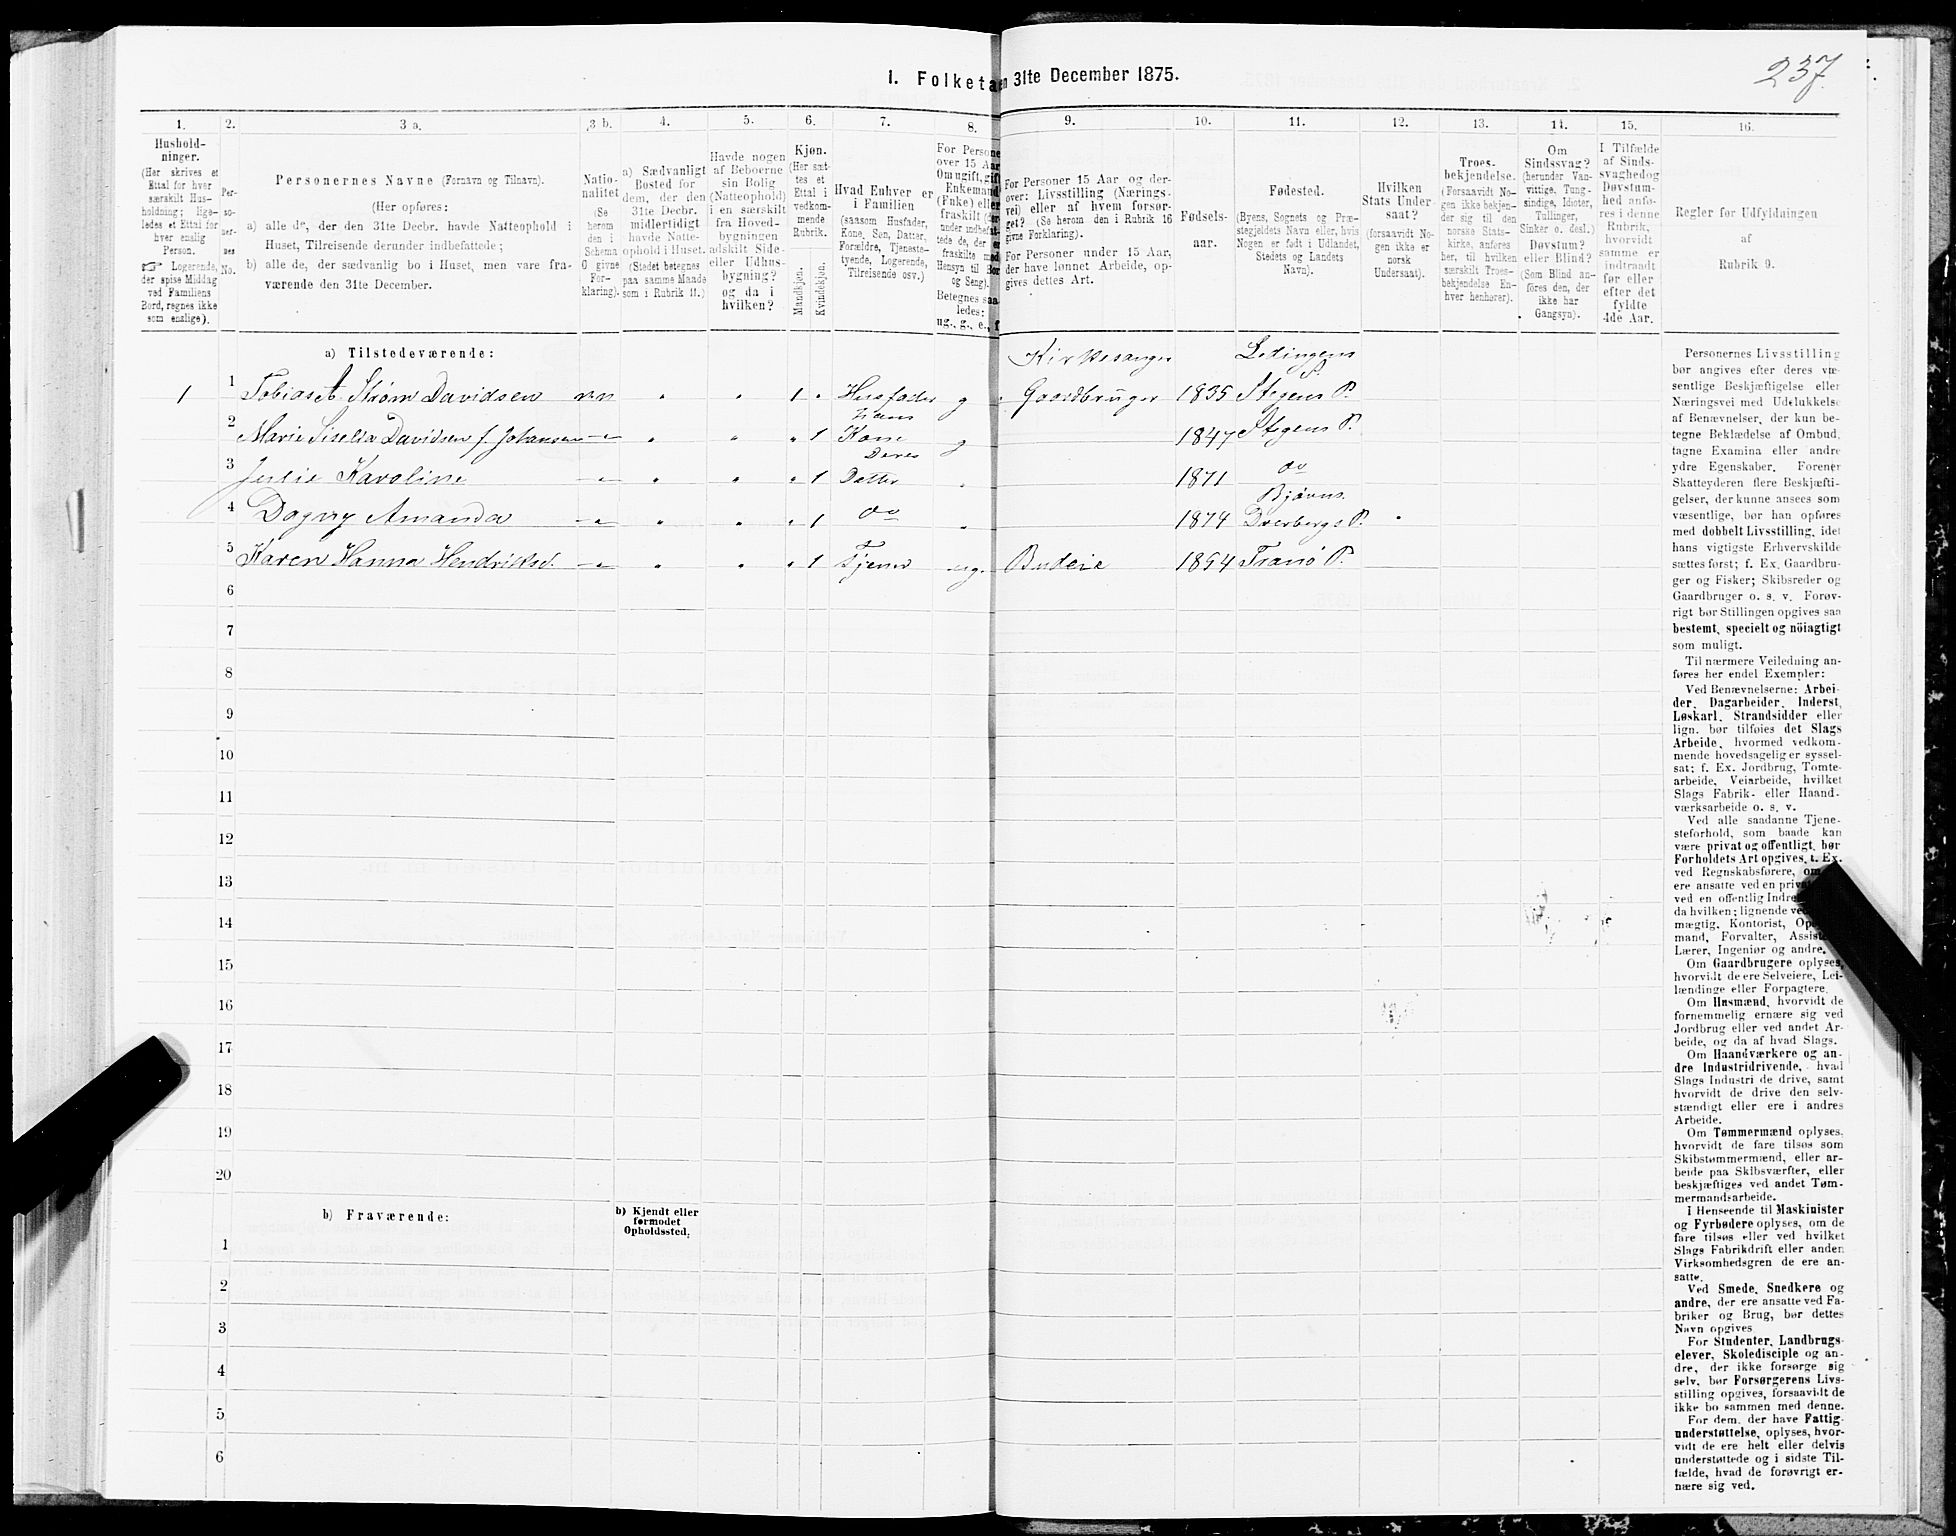 237.
1. Folketa en 31te December 1875.
1.
Hushold-
ninger.
(Her skrives et
Ettal for hver
særskilt Hus-
holdning; lige-
ledes et Ettal for
hver enslig
Person.
☞ Logerende,
der spise Middag
ved Familiens
Bord, regnes ikke
som enslige).
2.
Per-
so-
ner-
nes
No.
3 a.
Personernes Navne (Fornavn og Tilnavn).
(Her opføres:
a) alle de, der den 31te Decbr. havde Natteophold i
Huset, Tilreisende derunder indbefattede;
b) alle de, der sædvanlig bo i Huset, men vare fra-
værende den 31te December.
3 b.
Natio-
nalitet
(Se
herom
den i
Schema
O givne
For-
klaring).
4.
a) Sædvanligt
Bosted for
dem, der den
31te Decbr.
midlertidigt
havde Natte-
ophold i Huset.
(Stedet betegnes
paa samme Maade
som i Rubrik 11.)
5.
Havde nogen
af Beboerne
sin Bolig
(Natteophold)
i en særskilt
fra Hoved-
bygningen
adskilt Side-
eller Udhus-
bygning?
og da i
hvilken?
6.
Kjøn.
(Her sæt-
tes et
Ettal i
vedkom-
mende
Rubrik.
Mandkjøn.
Kvindekjøn.
7.
Hvad Enhver er
i Familien
(saasom Husfader,
Kone, Søn, Datter,
Forældre, Tjeneste-
tyende, Logerende,
Tilreisende osv.)
8.
For Persone
over 15 Aar
Om ugift, gift
Enkemand
(Enke) eller
fraskilt (der
under indbefat-
tede de, der er
fraskilte med
Hensyn til Bor
og Seng).
Betegnes saa
ledes:
ug., g., e., f
9.
For Personer 15 Aar og der-
over: Livsstilling (Nærings-
vei) eller af hvem forsør-
get? (Se herom den i Rubrik 16
givne Forklaring).
For Personer under 15 Aar,
der have lønnet Arbeide, op-
gives dettes Art.
10.
Fødsels-
aar.
11.
Fødested.
(Byens, Sognets og Præ-
stegjeldets Navn eller, hvis
Nogen er født i Udlandet,
Stedets og Landets
Navn).
12.
Hvilken
Stats Under-
saat?
(forsaavidt No-
gen ikke er
norsk
Undersaat).
13.
Troes-
bekjendelse.
(Forsaavidt No-
gen ikke bekjen-
der sig til den
norske Stats-
kirke, anføres
her, til hvilken
særskilt Troes-
bekjendelse En-
hver henhører).
14.
Om
Sindssvag?
(herunder Van-
vittige, Tung-
sindige, Idioter,
Tullinger,
Sinker o. desl.)
Døvstum?
eller Blind?
(Som Blind an-
føres den, der
ikke har
Gangsyn).
15.
I Tilfælde
af Sinds-
svaghed og
Døvstum-
hed anfø-
res i denne
Rubrik,
hvorvidt
samme er
indtraadt
før eller
efter det
fyldte
4de Aar.
16.
Regler for Udfyldningen
af
Rubrik 9.
a) Tilstedeværende:
Kirkesanger Lødingens
1 1 Tobias A. Strøm Davidsen nn " " 1 " Husfader g Gaardbruger 1835 Stegens P.
hans
2 Marie Siselia Davidsen f. Johansen " " " " 1 Kone g 1847 Stegens P.
Deres
3 Julie Karoline " " " " 1 Datter " 1871 do
Bjørns
4 Dagny Amanda " " " " 1 do " 1874 Dverbergs P.
5 Karen Hanna Hendriksd. " " " " 1 Tjener ug. Budeie 1854 Tranø P.
6
7
8
9
10
11
12
13
14
15
16
17
18
19
20
b) Fraværende:
b) Kjendt eller
formodet
Opholdssted.
1
2
3
4
5
6
Personernes Livsstilling
bør angives efter deres væ-
sentlige Beskjæftigelse eller
Næringsvei med Udelukkelse
af Benævnelser, der kun be-
tegne Beklædelse af Ombud,
tagne Examina eller andre
ydre Egenskaber. Forener
Skatteyderen flere Beskjæfti-
gelser, der kunne ansees som
væsentlige, bør han opføres
med dobbelt Livsstilling, idet
hans vigtigste Erhvervskilde
sættes først; f. Ex. Gaardbru-
ger og Fisker; Skibsreder og
Gaardbruger o. s. v. Forøv-
rigt bør Stillingen opgives saa
bestemt, specielt og nöiagtigt
som muligt.
Til nærmere Veiledning an-
føres her endel Exempler:
Ved Benævnelserne: Arbei-
der, Dagarbeider, Inderst,
Løskarl, Strandsidder eller
lign. bør tilføies det Slags
Arbeide, hvormed vedkom-
mende hovedsagelig er syssel-
sat; f. Ex. Jordbrug, Tomte-
arbeide, Veiarbeide, hvilket
Slags Fabrik- eller Haand-
værksarbeide o. s. v.
Ved alle saadanne Tjene-
steforhold, som baade kan
være privat og offentligt, bør
Forholdets Art opgives, t. Ex.
ved Regnskabsførere, om
ere ansatte ved en priva
ved en offentlig Indre
da hvilken; lignende ve
mægtig, Kontorist, Op
mand, Forvalter, Assist
Lærer, Ingeniør og andre.
Om Gaardbrugere oplyses,
hvorvidt de ere Selveiere, Lei-
lændinge eller Forpagtere.
Om Husmænd, hvorvidt de
fornemmelig ernære sig ved
Jordbrug eller ved andet Ar-
beide, og da af hvad Slags.
Om Haandværkere og an-
dre Industridrivende, hvad
Slags Industri de drive, samt
hvorvidt de drive den selv-
stændigt eller ere i andres
Arbeide.
Om Tømmermænd oplyses,
hvorvidt de fare tilsøs som
Skibstømmermænd, eller ar-
beide paa Skibsværfter, eller
beskjæftiges ved andet Tøm-
mermandsarbeide.
I Henseende til Maskinister
og Fyrbødere oplyses, om de
fare tilsøs eller ved hvilket
Slags Fabrikdrift eller anden
Virksomhedsgren de ere an-
satte.
Ved Smede, Snedkere og
andre, der ere ansatte ved Fa-
briker og Brug, bør dettes
Navn opgives.
For Studenter, Landbrugs-
elever, Skoledisciple og an-
dre, der ikke forsørge sig
selv, bør Forsørgerens Livs-
stilling opgives, forsaavidt de
ikke bo sammen med denne.
For dem, der have Fattig-
understøttelse, oplyses, hvor-
vidt de ere helt eller delvis
understøttede og i sidste Til-
fælde, hvad de forøvrigt er-
nære sig ved.